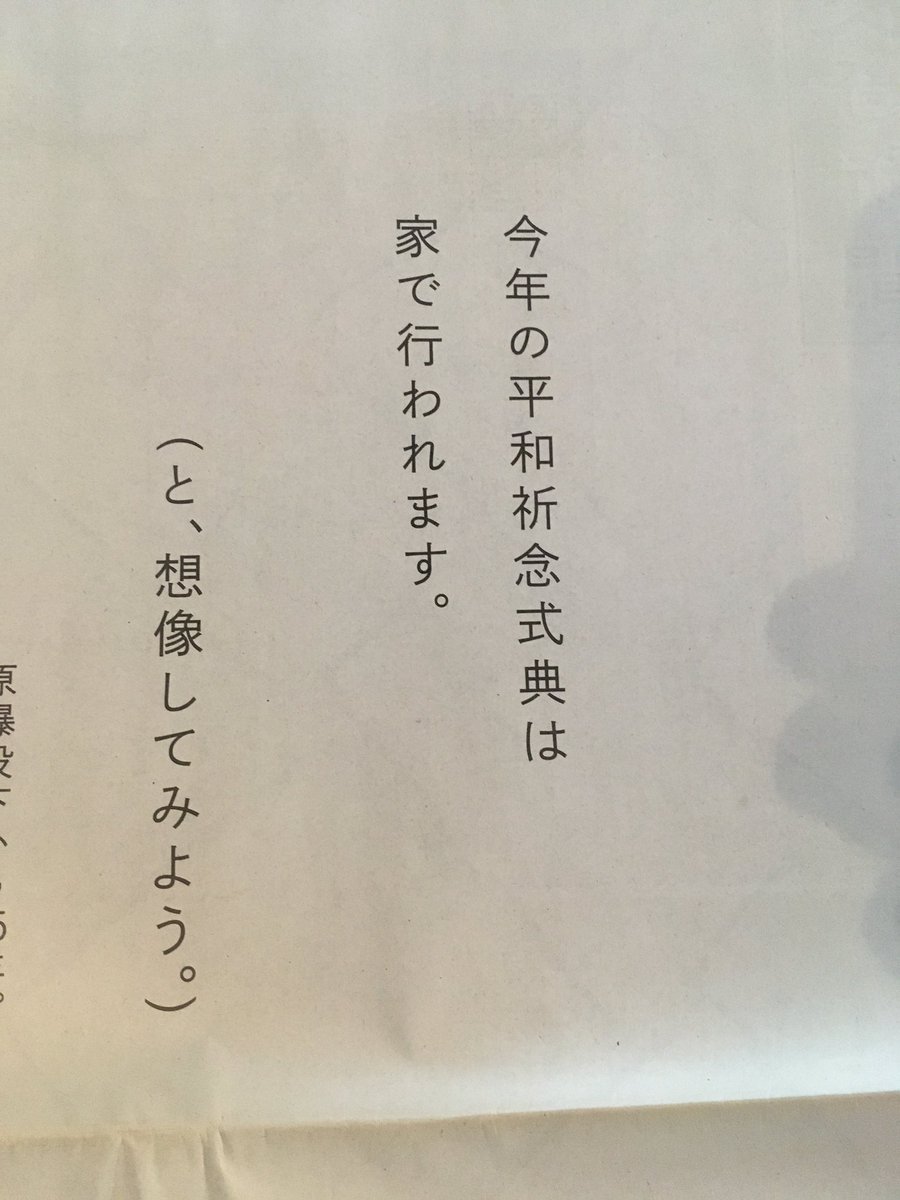 今年の平和祈念式典は
家で行われます。
（と、想像してみよう。）
原爆投下、